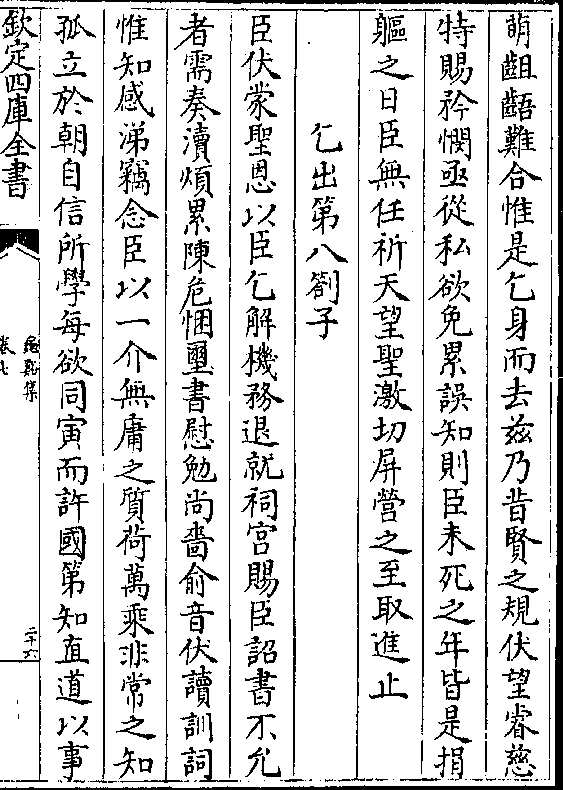 萌齟齬難合惟是乞身而去茲乃昔賢之規伏望睿慈
特賜矜憫亟從私欲免累誤知則臣未死之年皆是捐
軀之日臣無任祈天望聖激切屏營之至取進止
乞出第八劄子
臣伏蒙聖恩以臣乞解機務退就祠宫賜臣詔書不允
者需奏瀆煩累陳危悃璽書慰勉尚嗇俞音伏讀訓詞
惟知感涕竊念臣以一介無庸之質荷萬乘非常之知
孤立於朝自信所學每欲同寅而許國第知直道以事
欽定四庫全書
龜谿集
卷七
二十六